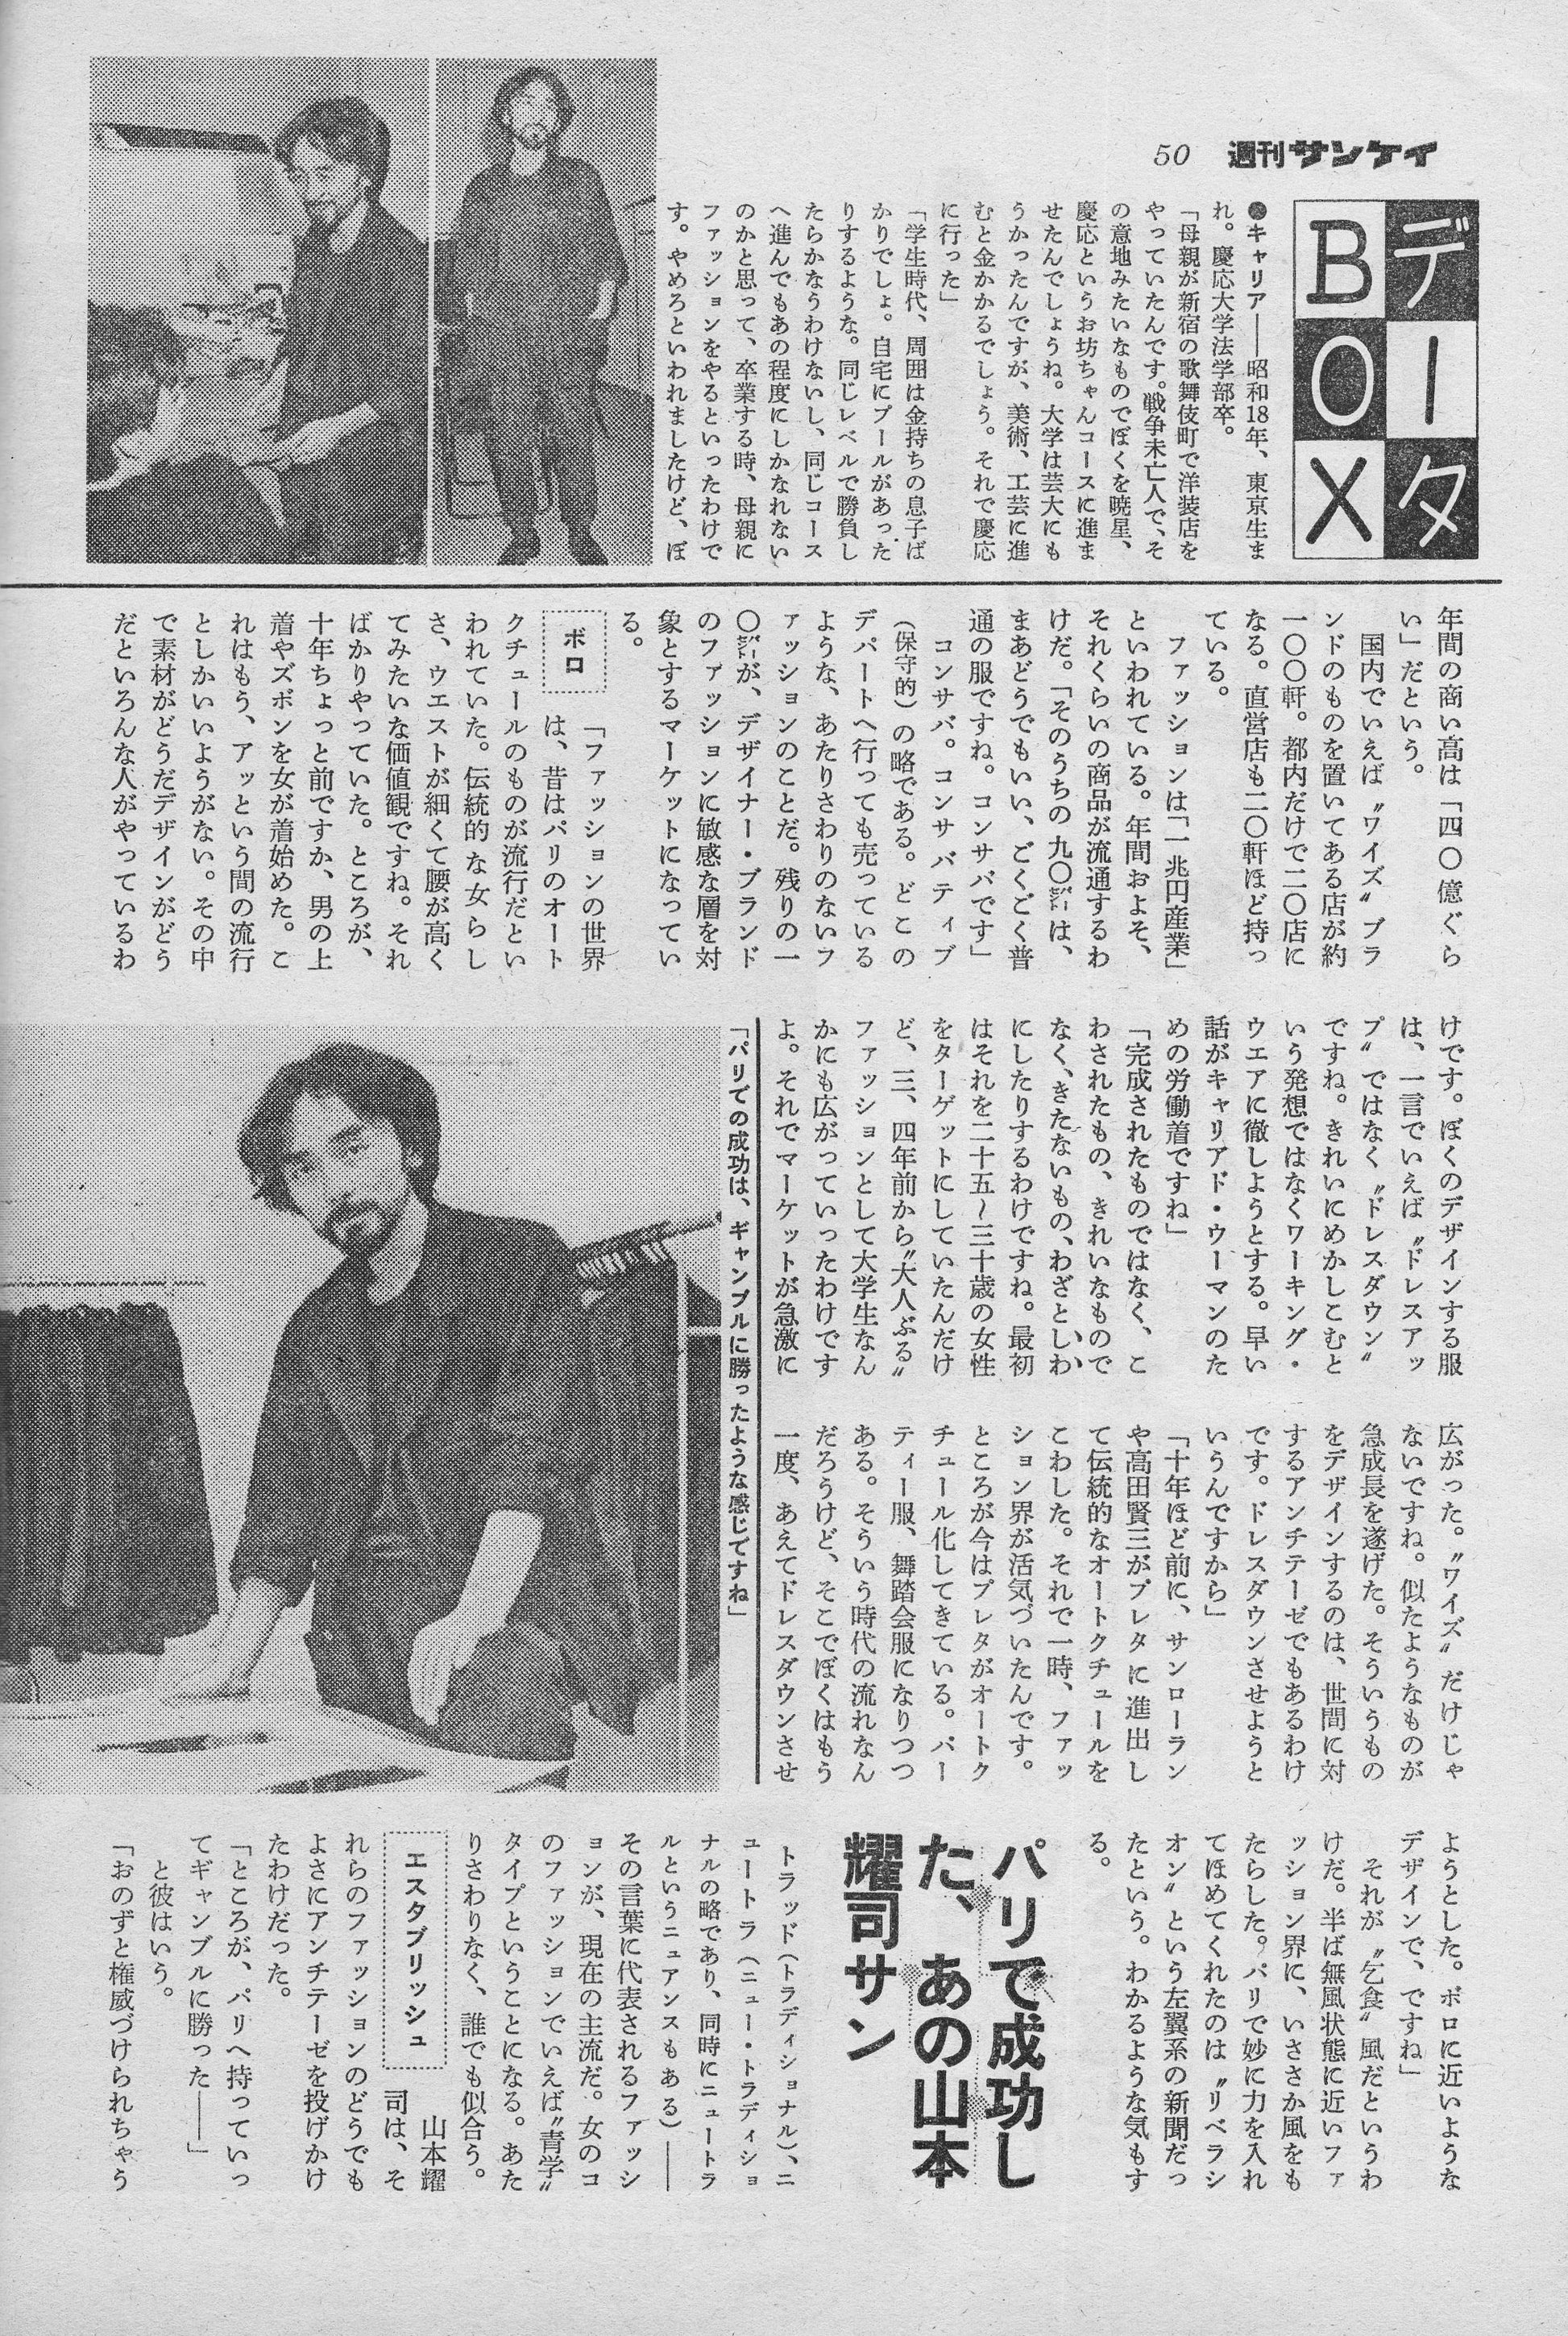 50 週刊サンケイ
データ
BOX
●キャリア――昭和18年、東京生ま
れ。慶応大学法学部卒。
「母親が新宿の歌舞伎町で洋装店を
やっていたんです。戦争未亡人で、そ
の意地みたいなものでぼくを暁星、
慶応というお坊ちゃんコースに進ま
せたんでしょうね。大学は芸大にも
うかったんですが、美術、工芸に進
むと金かかるでしょう。それで慶応
に行った」
「学生時代、周囲は金持ちの息子ば
かりでしょ。自宅にプールがあった
りするような。同じレベルで勝負し
たらかなうわけないし、同じコース
へ進んでもあの程度にしかなれない
のかと思って、卒業する時、母親に
ファッションをやるといったわけで
す。やめろといわれましたけど、ぼ
年間の商い高は「四〇億ぐら
い」だという。
国内でいえば〝ワイズ〟ブラ
ンドのものを置いてある店が約
一〇〇軒。都内だけで二〇店に
なる。直営店も二〇軒ほど持っ
ている。
ファッションは「一兆円産業」
といわれている。年間およそ、
それくらいの商品が流通するわ
けだ。「そのうちの九〇㌫は、
まあどうでもいい、ごくごく普
通の服ですね。コンサバです」
コンサバ。コンサバティブ
（保守的）の略である。どこの
デパートへ行っても売っている
ような、あたりさわりのないフ
ァッションのことだ。残りの一
〇㌫が、デザイナー・ブランド
のファッションに敏感な層を対
象とするマーケットになってい
る。
ボロ
「ファッションの世界
は、昔はパリのオート
クチュールのものが流行だとい
われていた。伝統的な女らし
さ、ウエストが細くて腰が高く
てみたいな価値観ですね。それ
ばかりやっていた。ところが、
十年ちょっと前ですか、男の上
着やズボンを女が着始めた。こ
れはもう、アッという間の流行
としかいいようがない。その中
で素材がどうだデザインがどう
だといろんな人がやっているわ
けです。ぼくのデザインする服
は、一言でいえば〝ドレスアッ
プ〟ではなく〝ドレスダウン〟
ですね。きれいにめかしこむと
いう発想ではなくワーキング・
ウエアに徹しようとする。早い
話がキャリアド・ウーマンのた
めの労働着ですね」
「完成されたものではなく、こ
わされたもの、きれいなもので
なく、きたないもの、わざとしわ
にしたりするわけですね。最初
はそれを二十五～三十歳の女性
をターゲットにしていたんだけ
ど、三、四年前から〝大人ぶる〟
ファッションとして大学生なん
かにも広がっていったわけです
よ。それでマーケットが急激に
「パリでの成功は、ギャンブルに勝ったような感じですね」
広がった。〝ワイズ〟だけじゃ
ないですね。似たようなものが
急成長を遂げた。そういうもの
をデザインするのは、世間に対
するアンチテーゼでもあるわけ
です。ドレスダウンさせようと
いうんですから」
「十年ほど前に、サンローラン
や高田賢三がプレタに進出し
て伝統的なオートクチュールを
こわした。それで一時、ファッ
ション界が活気づいたんです。
ところが今はプレタがオートク
チュール化してきている。パー
ティー服、舞踏会服になりつつ
ある。そういう時代の流れなん
だろうけど、そこでぼくはもう
一度、あえてドレスダウンさせ
ようとした。ボロに近いような
デザインで、ですね」
それが〝乞食〟風だというわ
けだ。半ば無風状態に近いファ
ッション界に、いささか風をも
たらした。パリで妙に力を入れ
てほめてくれたのは〝リベラシ
オン〟という左翼系の新聞だっ
たという。わかるような気もす
る。
パリで成功し
た、あの山本
耀司サン
トラッド（トラディショナル）、ニ
ュートラ（ニュー・トラディショ
ナルの略であり、同時にニュートラ
ルというニュアンスもある）――
その言葉に代表されるファッシ
ョンが、現在の主流だ。女のコ
のファッションでいえば〝青学〟
タイプということになる。あた
りさわりなく、誰でも似合う。
エスタブリッシュ
山本耀
司は、そ
れらのファッションのどうでも
よさにアンチテーゼを投げかけ
たわけだった。
「ところが、パリへ持っていっ
てギャンブルに勝った――」
と彼はいう。
「おのずと権威づけられちゃう